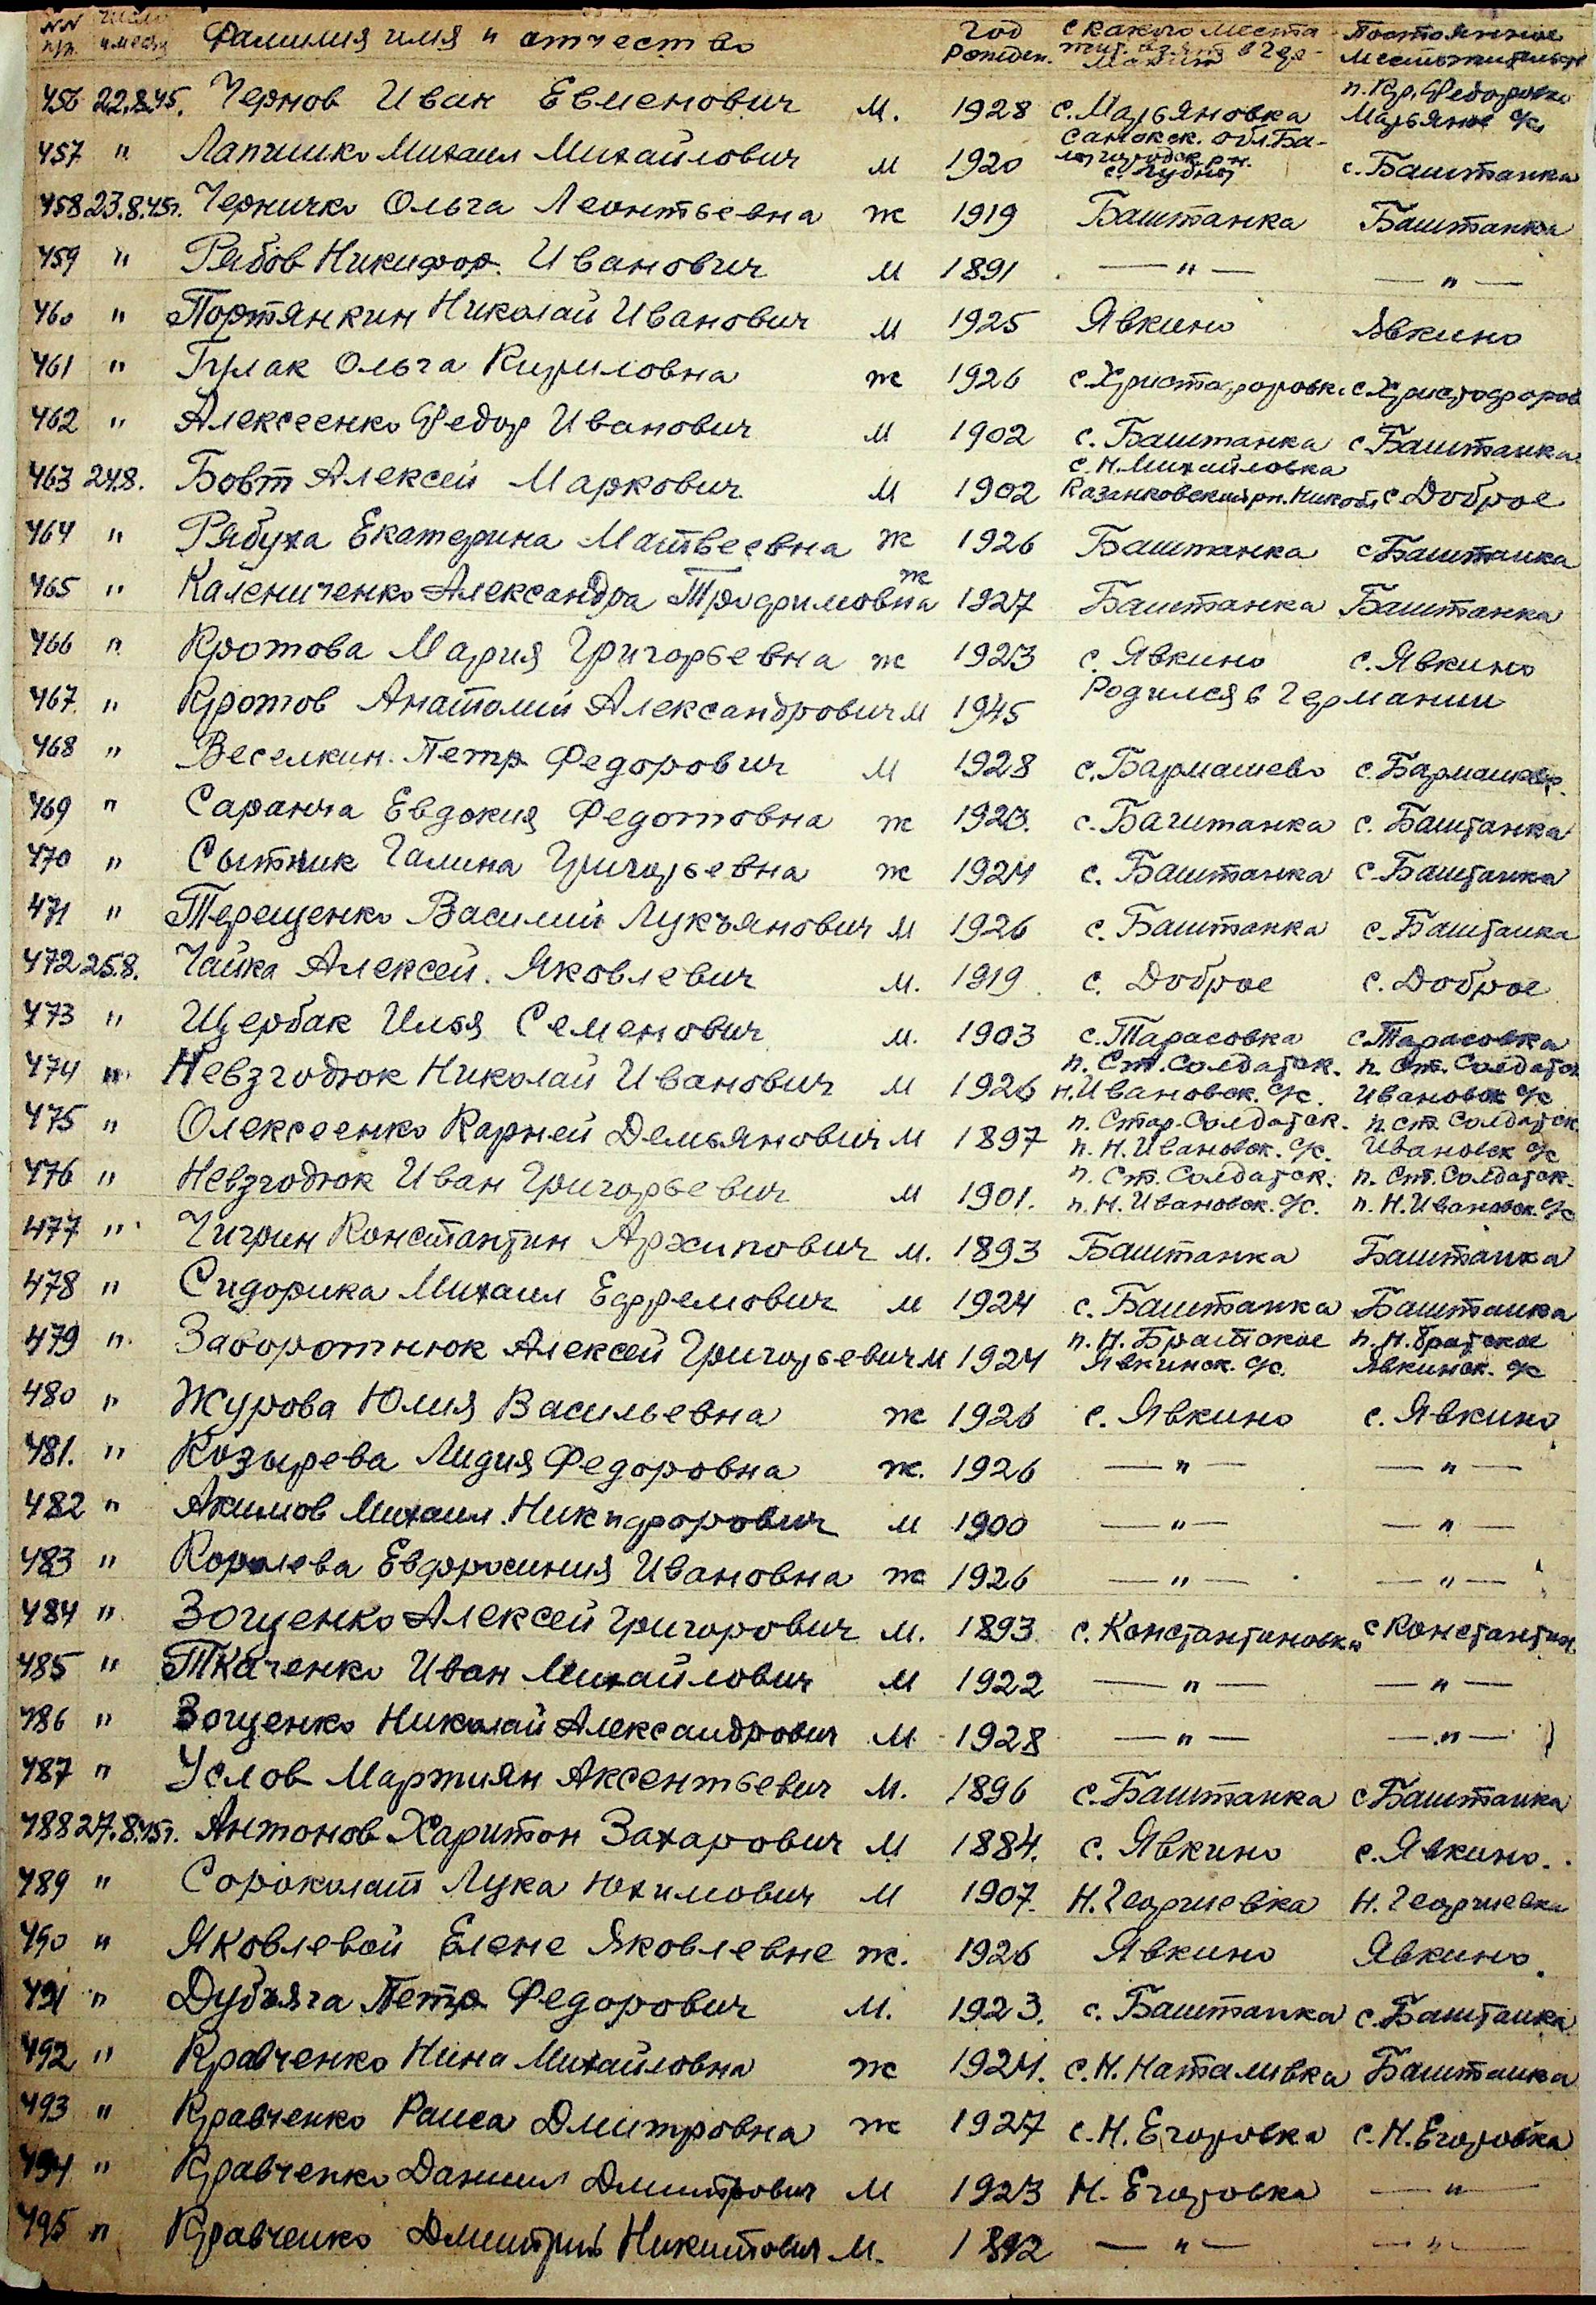 NN п/п. Число и месяц Фамилия имя и отчество Год рожден. С какого места жит. взят в Германию Постоянное местожительст
456 22.8.45. Чернов Иван Евменович м. 1928 с. Марьяновка п. Кр. Федоровка Марьянов с/с
457 " Лапчинко Михаил Михайлович м 1920 обл. с. Баштанка
458 23.8.45г. Черничко Ольга Леонтьевна ж 1919 Баштанка Баштанка
459 " Рябов Никифор. Иванович м 1891 — " — — " —
460 " Портянкин Николай Иванович м 1925 Явкино Явкино
461 " Булак Ольга Кириловна ж 1926 с. Христофоровк. с. Христофоров
462 " Алексеенко Федор Иванович м 1902 с. Баштанка с. Баштанка
463 24.8. Бовт Алексей Маркович м 1902 с. Н. Михайловка Казанковский рн. Никоб с. Доброе
464 " Рябуха Екатерина Матвеевна ж 1926 Баштанка с Баштанка
465 " Калениченко Александра Трофимовна ж 1927 Баштанка Баштанка
466 " Кротова Мария Григорьевна ж 1923 с. Явкино с. Явкино
467 " Кротов Анатолий Александрович м 1945 Родился в Германии
468 " Веселкин. Петр Федорович м 1928 с. Бармашево с. Бармашево.
469 " Саранча Евдокия Федотовна ж 1923. с. Баштанка с. Баштанка
470 " Сытник Галина Григорьевна ж 1924 с. Баштанка с. Баштанка
471 " Терещенко Василий Лукъянович м 1926 с. Баштанка с. Баштанка
472 25.8. Чайка Алексей. Яковлевич м. 1919 с. Доброе с. Доброе
473 " Щербак Илья Семенович м. 1903 с. Тарасовка с. Тарасовка
474 " Невзгодюк Николай Иванович м 1926 п. Ст. Солдатск. Н. Ивановск. с/с. п. Ст. Солдатск Ивановск с/с
475 " Олексеенко Карней Демьянович м 1897 п. Стар. Солдатск. п. Н. Ивановск. с/с. п. Ст. Солдатск Ивановск с/с
476 " Невзгодюк Иван Григорьевич м 1901. п. Ст. Солдатск. п. Н. Ивановск. с/с. п. Ст. Солдатск. п. Н. Ивановск. с/с
477 " Чигрин Константин Архипович м. 1893 Баштанка Баштанка
478 " Сидорика Михаил Ефремович м 1924 с. Баштанка Баштанка
479 " Заворотнюк Алексей Григорьевич м 1924 п. Н. Братское Явкинск. с/с. п. Н. Братское Явкинск. с/с
480 " Журова Юлия Васильевна ж 1926 с. Явкино с. Явкино
481. " Козырева Лидия Федоровна ж. 1926 — " — — " —
482 " Акимов Михаил. Никифорович м 1900 — " — — " —
483 " Королева Евфросиния Ивановна ж 1926 — " — — " —
484 " Зощенко Алексей Григорович м. 1893 с. Константиновка с Константин
485 " Ткаченко Иван Михайлович м 1922 — " — — " —
486 " Зощенко Николай Александрович м. 1928 — " — — " —
487 " Услов Мартиян Аксентьевич м. 1896 с. Баштанка с Баштанка
488 27.8.45г. Антонов Харитон Захарович м 1884. с. Явкино с. Явкино.
489 " Сороколат Лука Юхимович м 1907. Н. Георгиевка Н. Георгиевка
490 " Яковлевой Елене Яковлевне ж. 1926 Явкино Явкино.
491 " Дубяга Петр Федорович м. 1923. с. Баштанка с. Баштанка
492 " Кравченко Нина Михайловна ж 1924. с. Н. Наталивка Баштанка
493 " Кравченко Раиса Дмитровна ж 1927 с. Н. Егоровка с. Н. Егоровка
494 " Кравченко Даниил Дмитрович м 1923 Н. Егоровка — " —
495 " Кравченко Дмитрий Никитович м. 1892 — " — — " —